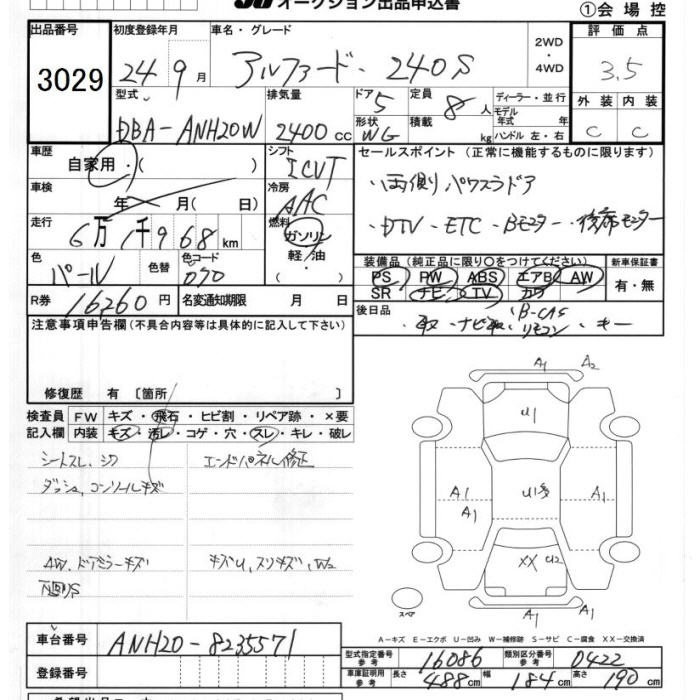 オークション出品申込書
①会場控
出品番号
初度登録年月
車名・グレード
評価点
3029
24年9月
アルファード・240S
2WD・4WD
3.5
型式
排気量
ドア
定員
ディーラー・並行
外装 内装
DBA-ANH20W
2400cc
5
8人
モデル年式 年式
C C
形状
積載
kg
ハンドル 左・右
WG
車歴
シフト
セールスポイント (正常に機能するものに限ります)
自家用・( )
ICVT
・両側パワスラドア
車検
年 月(日)
冷房
AAC
・DTV・ETC・Bモニター・後席モニター
走行
6万1千968km
燃料
ガソリン
軽/油
( )
装備品 (純正品に限り〇をつけてください)
新車保証書
色
パール
色替
色コード
070
PS PW ABS エアB AW
SR ナビ TV カワ
有・無
R券
16260円
名変通知期限 月 日
後日品
・取・ナビ取・B-CAS リモコン・キー
注意事項申告欄 (不具合内容等は具体的に記入して下さい)
修復歴 有 〔箇所
検査員記入欄
FW キズ・飛石・ヒビ割・リペア跡・×要
内装 キズ・汚レ・コゲ・穴・スレ・キレ・破レ
シートスレ、シワ
エンドパネル修正
ダッシュ、コンソールキズ
AW、ドアミラーキズ
キズU、スリキズ、W2
下廻りS
A1 A2
U1
A1
A1
A1
XX U2
A1 A1
スペア
A-キズ E-エクボ U-凹み W-補修跡 S-サビ C-腐食 XX-交換済
車台番号
ANH20-8235571
登録番号
型式指定番号 参考
16086
類別区分番号 参考
0422
車庫証明用 参考
長さ
488cm
幅
184cm
高さ
190cm